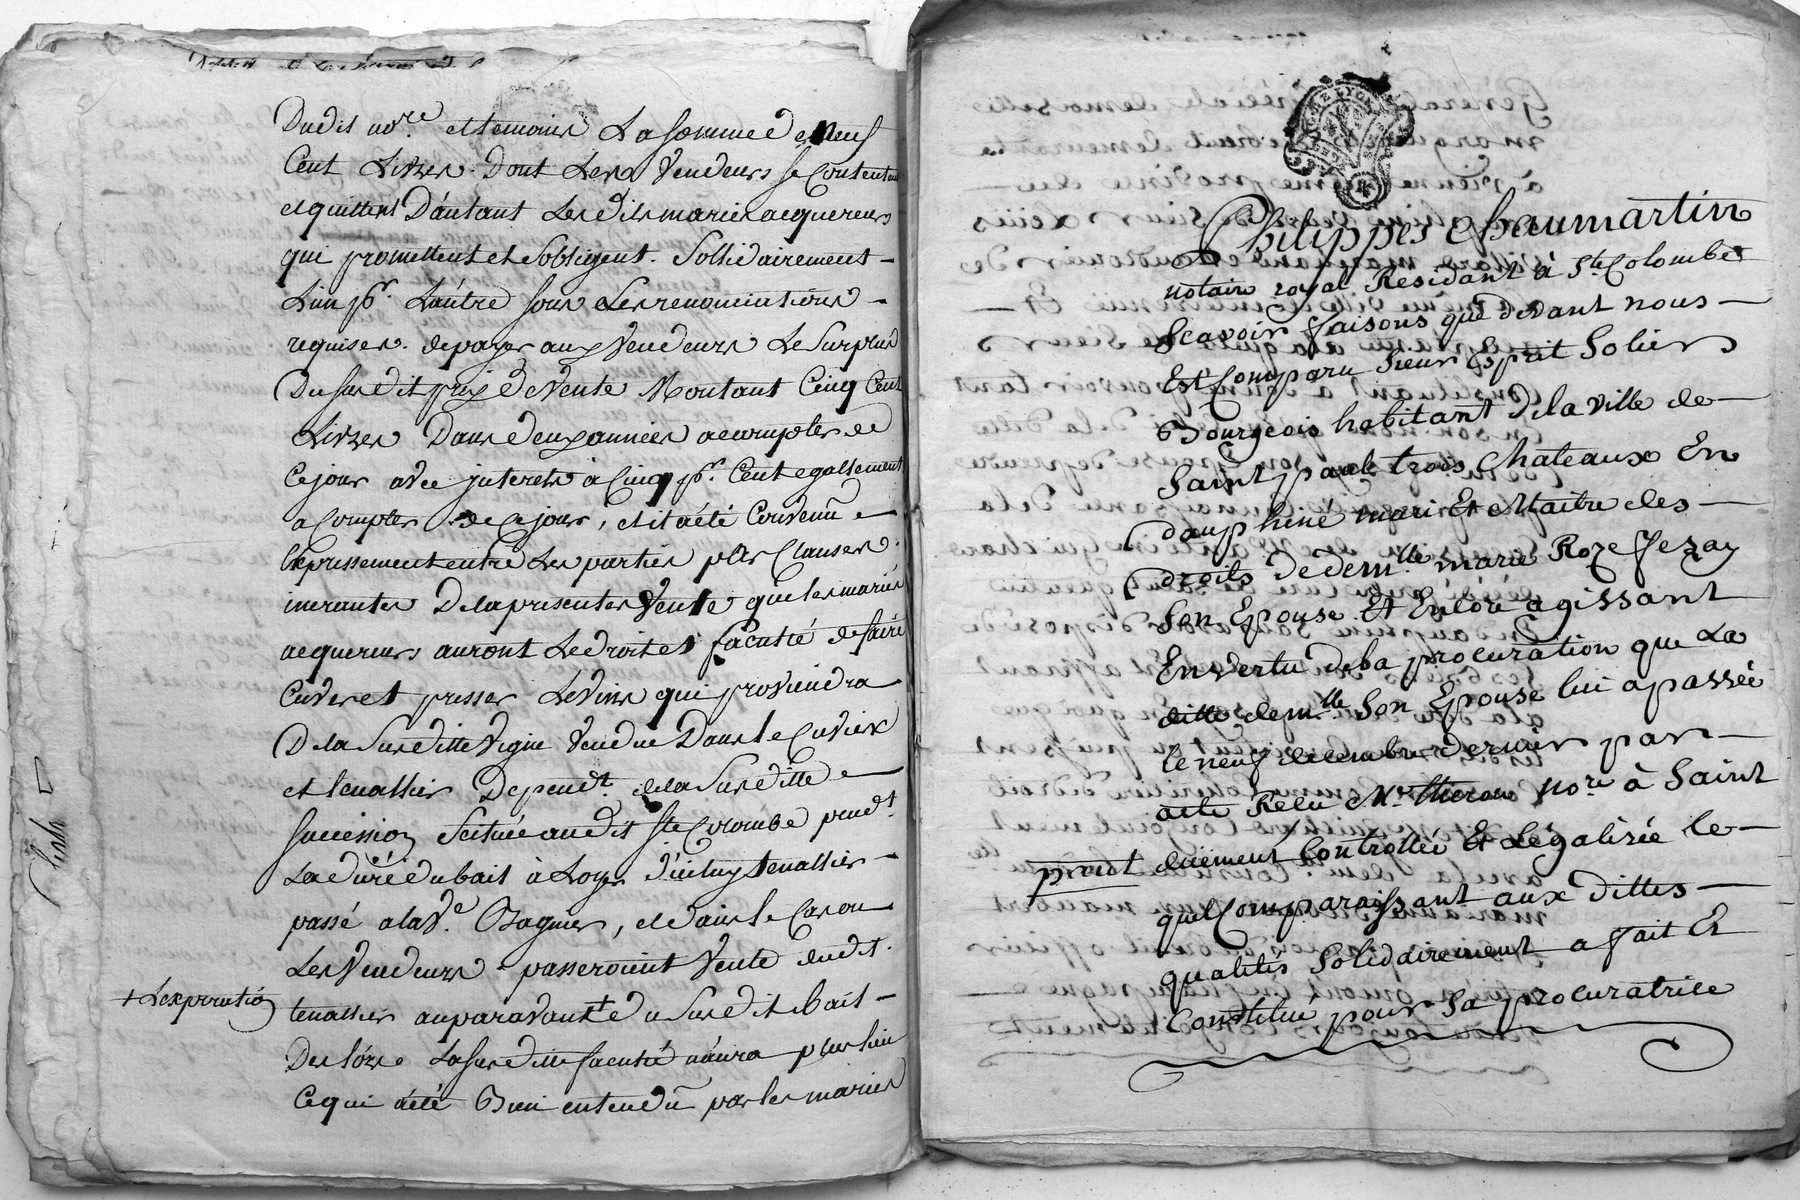 Dudit no.re et temoins La somme de Neuf
Cent Livres. Dont Les Vendeurs se Contentent
et quittent D'autant Lesdits maries acquereurs
qui promettent et s'obligent. Sollidairement –
L'un pr. L'autre sous Les renonciations –
requises. de payer aux Vendeurs Le Surplus
Du susdit prix De Vente Montant Cinq Cent
Livres Dans deux années a compter de
Ce jour avec interets à Cinq pr. Cent egallement
a Compter de Ce jour, et il a été Convenu –
Expressement entre Les parties pr Clauses
inerantes De la presente Vente que les mariés
acquereurs auront Le droit et faculté de faire
Cuver et presser Le Vin qui proviendra
De la Susditte Vigne Vendue Dans le Cuvier
et tenallier Depend.t de la Susditte –
succession Scituée audit Ste Colombe pend.t
La durée du bail à Loyer d'icluy tenallier –
passé a la Ve. Bagnier, et dans le Cas ou
Les Vendeurs passeroient Vente dudit.
tenallier auparavant + du susdit bail –
+ L'expiration
Des lors La susditte faculté n'aura plus lieu
Ce qui a été Bien entendu par les mariés
Philippes Chaumartin
notaire royal Residant à Ste Colombe
Scavoir faisons que devant nous –
Est Comparu Sieur Esprit Soliers
Bourgeois habitant de la ville de –
Saint paul trois Chateaux En
dauphiné mari Et Maitre des –
droits de dem.lle marie Roze Jezay
Son Epouse Et Encore agissant
En vertu de la procuration que La
ditte dem.lle Son Epouse lui a passée
le neuf decembre dernier par –
acte Relu Mr. theron no.re à Saint
duëment Controllée Et Légalizée le –
quel Comparaissant aux dittes –
qualités Solidairement a fait Et
Constitué pour Sa procuratrice